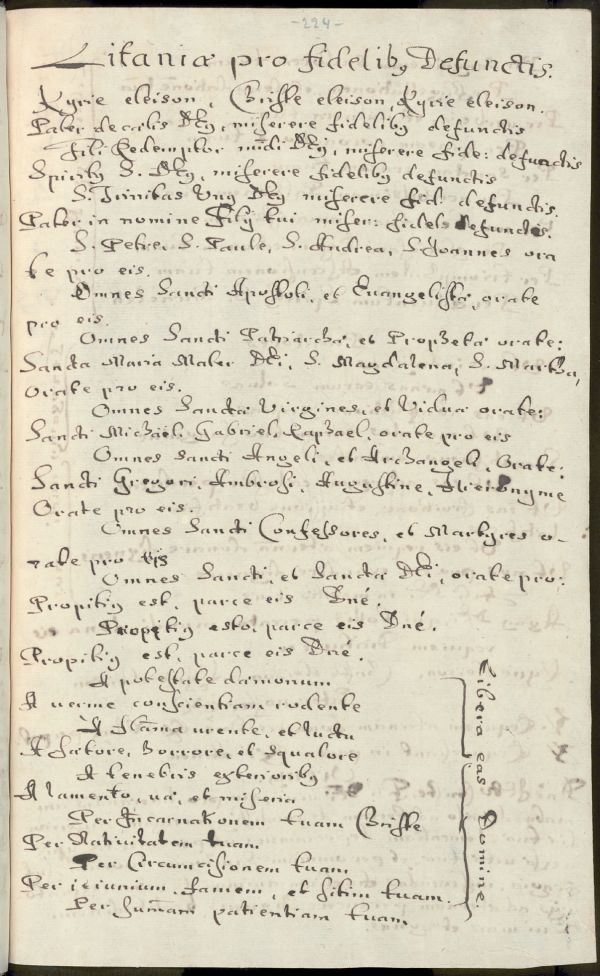 -224-
Litaniæ pro fidelibꝫ Defunctis.
Kyrie eleison, Christe eleison, Kyrie eleison.
Pater de cælis Dꝫ, miserere fidelibꝫ defunctis
Fili Redemptor mūdi Dꝫ, miserere fide: defunctis
Spiritꝫ S. Dꝫ, miserere fidelibꝫ defunctis
S. Trinitas Unꝫ Dꝫ miserere fid: defunctis.
Pater in nomine Filij tui miser: fidel: defunctis.
S. Petre, S. Paule, S. Andrea, S. Joannes ora
te pro eis.
Omnes Sancti Apostoli, et Euangelistæ, orate
pro eis.
Omnes Sancti Patriarchæ, et Prophetæ orate:
Sancta Maria Mater Dei, S. Magdalena, S. Martha,
Orate pro eis.
Omnes Sanctæ Virgines, et Viduæ orate:
Sancti Michäel, Gabriel, Raphael, orate pro eis
Omnes Sancti Angeli, et Archangeli, Orate:
Sancti Gregori, Ambrosi, Augustine, Hieronyme
Orate pro eis.
Omnes Sancti Confessores, et Martyres o-
rate pro eis
Omnes Sancti, et Sanctæ Dei, orate pro:
Propitiꝫ est, parce eis Dné.
Propitiꝫ esto, parce eis Dné.
Propitiꝫ est, parce eis Dné.
A potestate dæmonum
A uerme conscientiam rodente
A flāma urente, et luctu
A fætore, horrore, et squalore
A tenebris exterioribꝫ
A lamento, uæ, et miseria
Per Incarnationem tuam Christe
Per Natiuitatem tuam
Per Circumcisionem tuam
Per ieiunium, famem, et sitim tuam.
Per sum̄am patientiam tuam
Libera eas Domine.